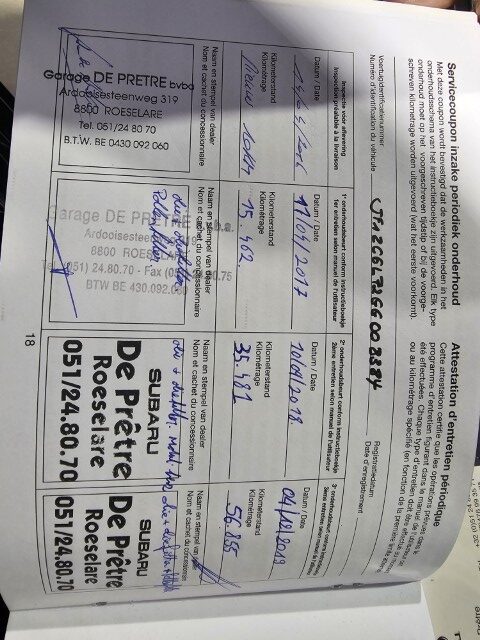 Servicecoupon inzake periodiek onderhoud
Met deze coupon wordt bevestigd dat de werkzaamheden in het
onderhoudsschema van het instructieboekje zijn uitgevoerd. Elk type
onderhoud moet op het voorgeschreven tijdstip of bij de voorge-
schreven kilometrage worden uitgevoerd (wat het eerste voorkomt).
Attestation d'entretien périodique
Cette attestation certifie que les opérations prévues dans le
programme d'entretien figurant dans le manuel de l'utilisateur
été effectuées. Chaque type d'entretien doit être effectué
ou au kilométrage spécifié (en fonction de la première limite
Voertuigidentificatienummer
Numéro d'identification du véhicule
Registratiedatum
Date d'enregistrement
Inspectie vóór aflevering
Inspection préalable à la livraison
Datum / Date
Kilometerstand
Kilométrage
Naam en stempel van dealer
Nom et cachet du concessionnaire
Garage DE PRETRE bvba
Ardooisesteenweg 319
8800 ROESELARE
Tel. 051/24 80 70
B.T.W. BE 0430 092 060
1e onderhoudsbeurt conform instructieboekje
1er entretien selon manuel de l'utilisateur
Datum / Date
11/04/2017
Kilometerstand
Kilométrage
15.462
Naam en stempel van dealer
Nom et cachet du concessionnaire
Garage DE PRETRE b.v.b.a.
Ardooisesteenweg
8800 ROESELARE
Tel. (051) 24.80.70 - Fax (051)
BTW BE 430.092.060
2e onderhoudsbeurt conform instructieboekje
2ème entretien selon manuel de l'utilisateur
Datum / Date
Kilometerstand
Kilométrage
35.481
Naam en stempel van dealer
Nom et cachet du concessionnaire
SUBARU
De Prêtre
Roeselare
051/24.80.70
3e onderhoudsbeurt conform instructieboekje
3ème entretien selon manuel de l'utilisateur
Datum / Date
Kilometerstand
Kilométrage
56.855
Naam en stempel van
Nom et cachet du concessionnaire
SUBARU
De Prêtre
Roeselare
051/24.80.70
18